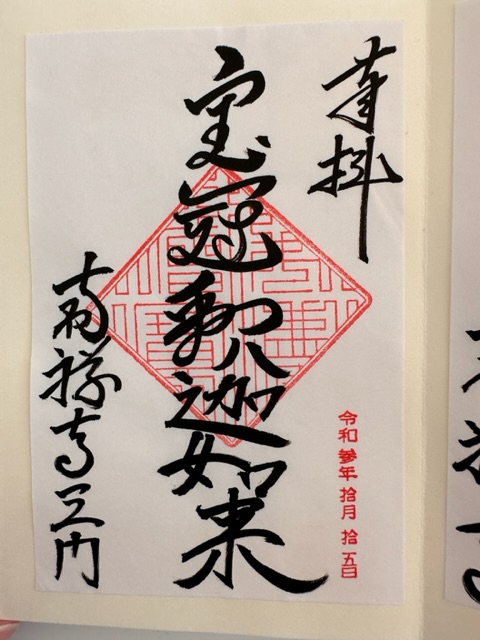 奉拝
令和参年拾月拾五日
宝冠釈迦如来
南禅寺三門